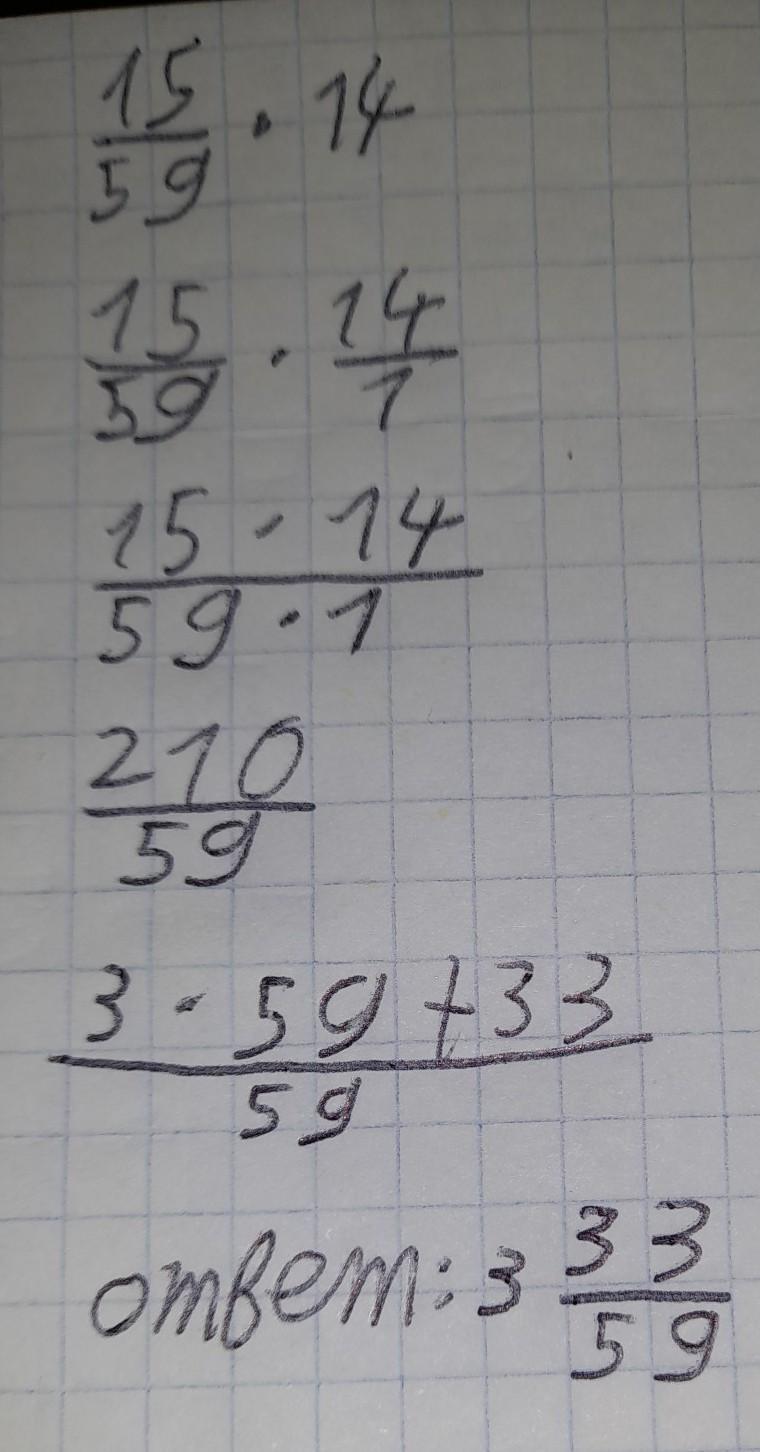 15/59 · 14
15/59 · 14/1
15 · 14 / 59 · 1
210/59
3 · 59 + 33 / 59
ответ: 3 33/59